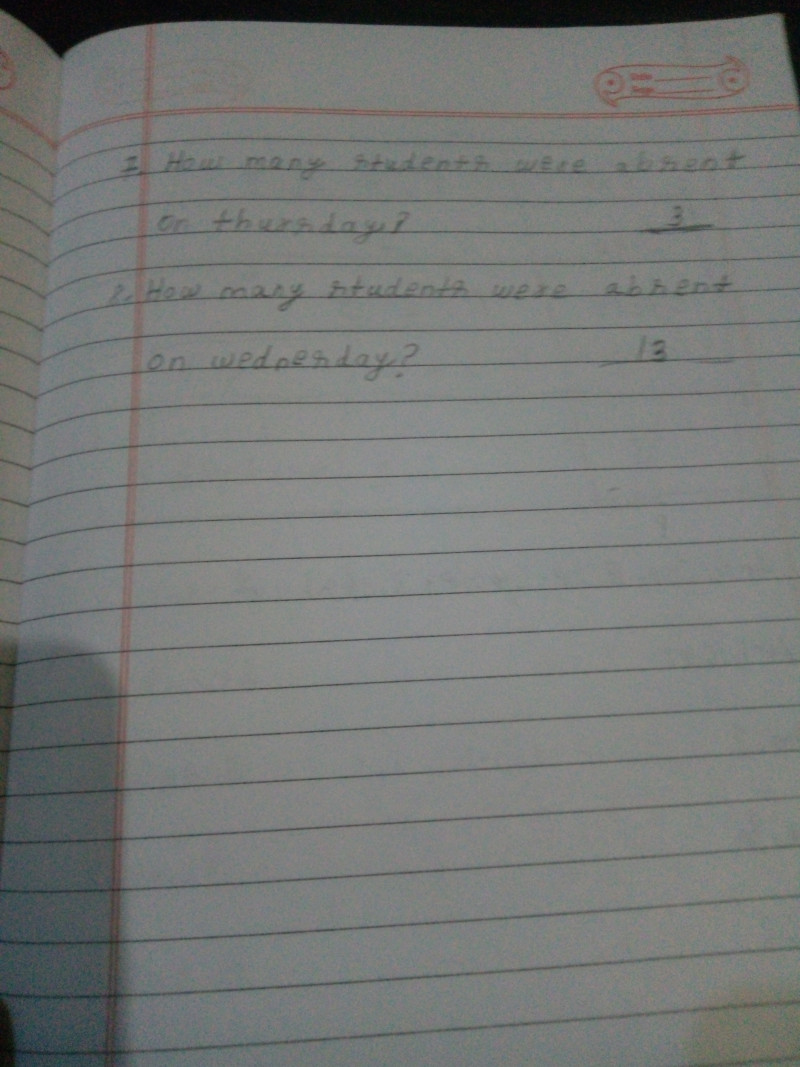 Date
Page
7. How many students were absent
on thursday? 3
8. How many students were absent
on wednesday? 13